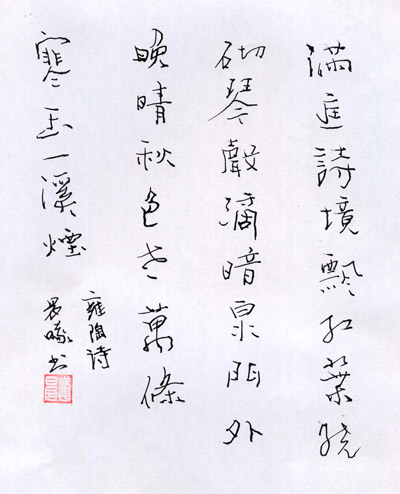 滿庭詩境飄紅葉繞
砌琴聲滴暗泉門外
晚晴秋色老萬條
寒玉一溪煙
雍陶詩
書